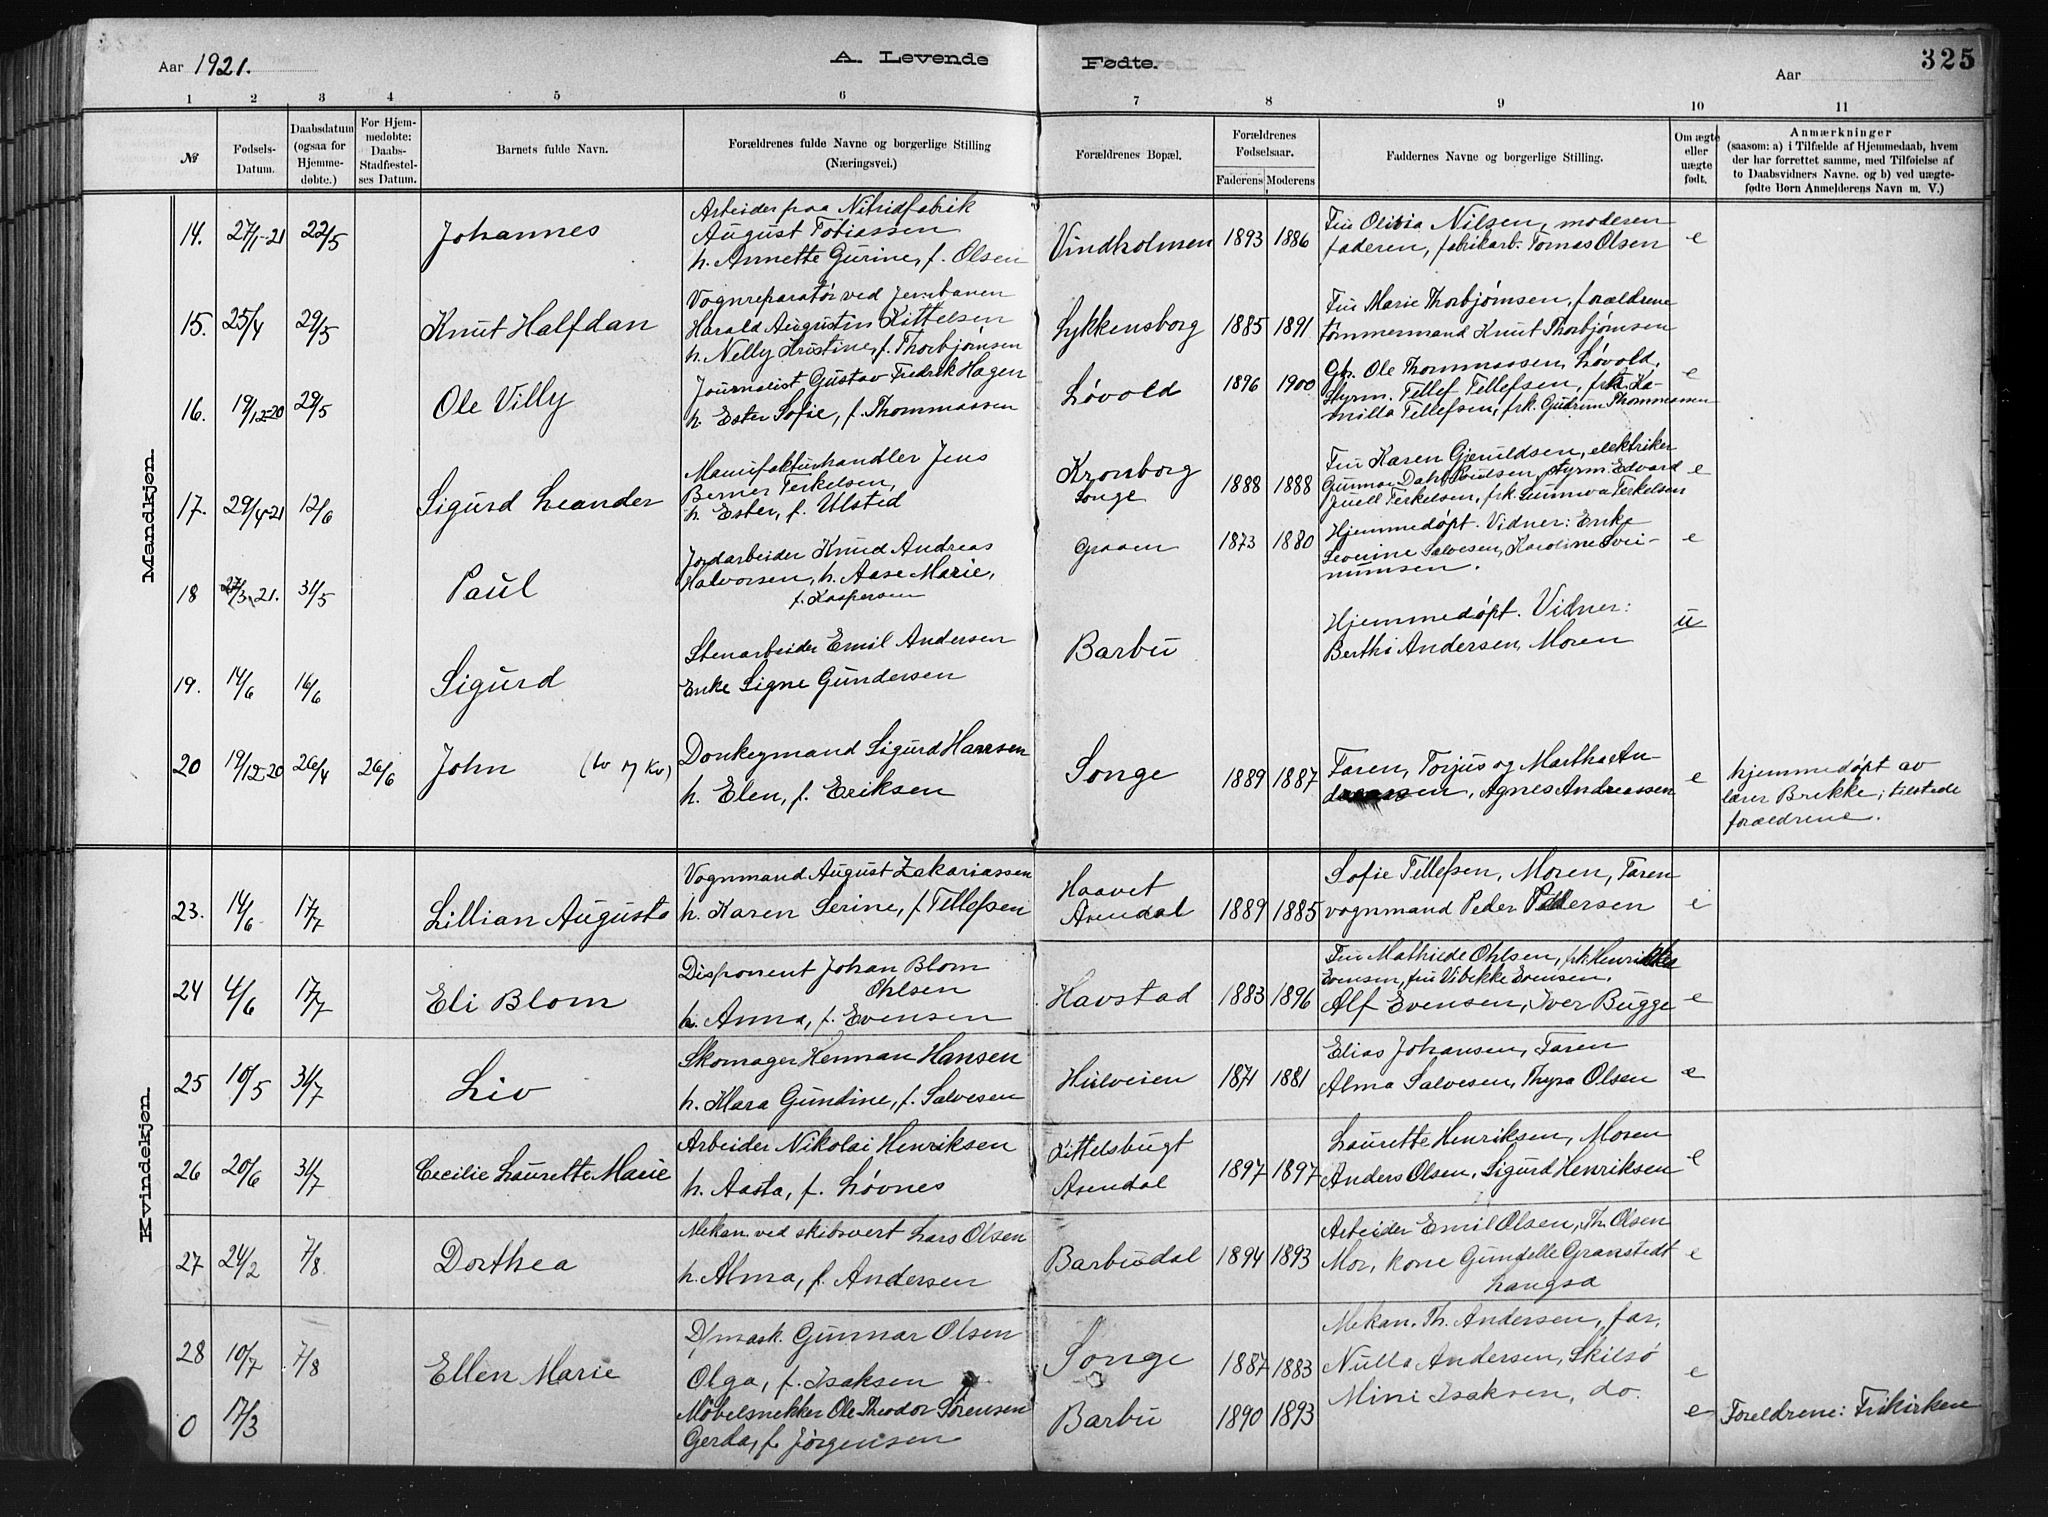 Aar 1921.
A. Levende Fødte.
Aar
325
1 2 3 4 5 6 7 8 9 10 11
№
Fødsels-Datum.
Daabsdatum (ogsaa for Hjemme-døbte.)
For Hjem-medøbte: Daabs-Stadfæstel-ses Datum.
Barnets fulde Navn.
Forældrenes fulde Navne og borgerlige Stilling (Næringsvei.)
Forældrenes Bopæl.
Forældrenes Fødselsaar.
Faderens Moderens
Faddernes Navne og borgerlige Stilling.
Om ægte eller uægte født.
Anmærkninger
(saasom: a) i Tilfælde af Hjemmedaab, hvem
der har forrettet samme, med Tilføielse af
to Daabsvidners Navne. og b) ved uægte-
fødte Børn Anmelderens Navn m. V.)
Mandkjøn.
14. 27/1-21 22/5 Johannes
Arbeider paa Nitridfabrik
August Tobiassen
h. Annette Gurine, f. Olsen
Vindholmen 1893 1886
Fru Olivia Nilsen, moderen
faderen, fabrikarb. Tomas Olsen
e
15. 25/4 29/5 Knut Halfdan
Vognreparatør ved Jernbanen
Harald Augustin Kittelsen
h. Nelly Kristine, f. Thorbjørnsen
Lykkensborg 1885 1891
Fru Marie Thorbjørnsen, forældrene
tømmermand Knut Thorbjørnsen
16. 19/12-20 29/5 Ole Villy
Journalist Gustav Fredrik Hagen
h. Ester Sofie, f. Thommassen
Løvold 1896 1900
Ole Thommassen, Løvold,
Styrm. Tellef Tellefsen, frk. Ka-
milla Tellefsen, frk. Gudrun Thommassen
e
17. 29/4-21 12/6 Sigurd Leander
Manufakturhandler Jens
Berner Terkelsen,
h. Ester, f. Ulsted
Kronborg
Songe
1888 1888
Fru Karen Gjeruldsen, elektriker
Gunnar Dahl styrm. Edvard
Juell Terkelsen, frk. Gunnva Terkelsen
e
18 27/3-21. 31/5 Paul
Jordarbeider Knud Andreas
Halvorsen, h. Aase Marie,
f. Kaspersen
Graaen 1873 1880
Hjemmedøpt. Vidner: Enke
Severine Salvesen, Karoline Svei-
numsen.
e
19. 14/6 16/6 Sigurd
Stenarbeider Emil Andersen
Enke Signe Gundersen
Barbu
Hjemmedøpt. Vidner:
Berthe Andersen, Moren
u
20 19/12-20 26/4 26/6 John (tv m Kv)
Donkeymand Sigurd Hansen
h. Elen, f. Eriksen
Songe 1889 1887
Faren, Torjus og Martha An-
dreassen, Agnes Andreassen
e
hjemmedøpt av
lærer Brekke; tilstede
forældrene.
Kvindekjøn.
23. 14/6 17/7 Lillian Augusta
Vognmand August Zakariassen
h. Karen Serine, f. Tellefsen
Haavet
Arendal
1889 1885
Sofie Tellefsen, Moren, Faren
vognmand Peder Pedersen
e
24 4/6 17/7 Eli Blom
Disponent Johan Blom
Ohlsen
h. Anna, f. Evensen
Havstad 1883 1896
Fru Mathilde Ohlsen, frk Henrikke
Evensen, fru Vibekke Evensen,
Alf Evensen, Iver Bugge
e
25 10/5 31/7 Liv
Skomager Herman Hansen
h. Klara Gundine, f. Salvesen
Hisveien 1871 1881
Elias Johansen, Faren
Alma Salvesen, Thyra Olsen
e
26 20/6 31/7 Cecilie Laurette Marie
Arbeider Nikolai Henriksen
h. Aasta, f. Løvnes
Kittelsbugt
Arendal
1897 1897
Laurette Henriksen, Moren
Anders Olsen, Sigurd Henriksen
e
27 24/2 7/8 Dorthea
Mekan. ved skibsvert Lars Olsen
h. Alma, f. Andersen
Barbudal 1894 1893
Arbeider Emil Olsen, Th. Olsen
Mor, kone Gundelle Granstedt
Langsa
e
28 10/7 7/8 Ellen Marie
D/mask. Gunnar Olsen
Olga, f. Isaksen
Songe 1887 1883
Mekan. Th. Andersen, far,
Nulla Andersen, Skilsø
Mini Isaksen, do.
e
0 17/3
Møbelsnekker Ole Theodor Sørensen
Gerda, f. Jørgensen
Barbu 1890 1893
e
Foreldrene: Frikirken